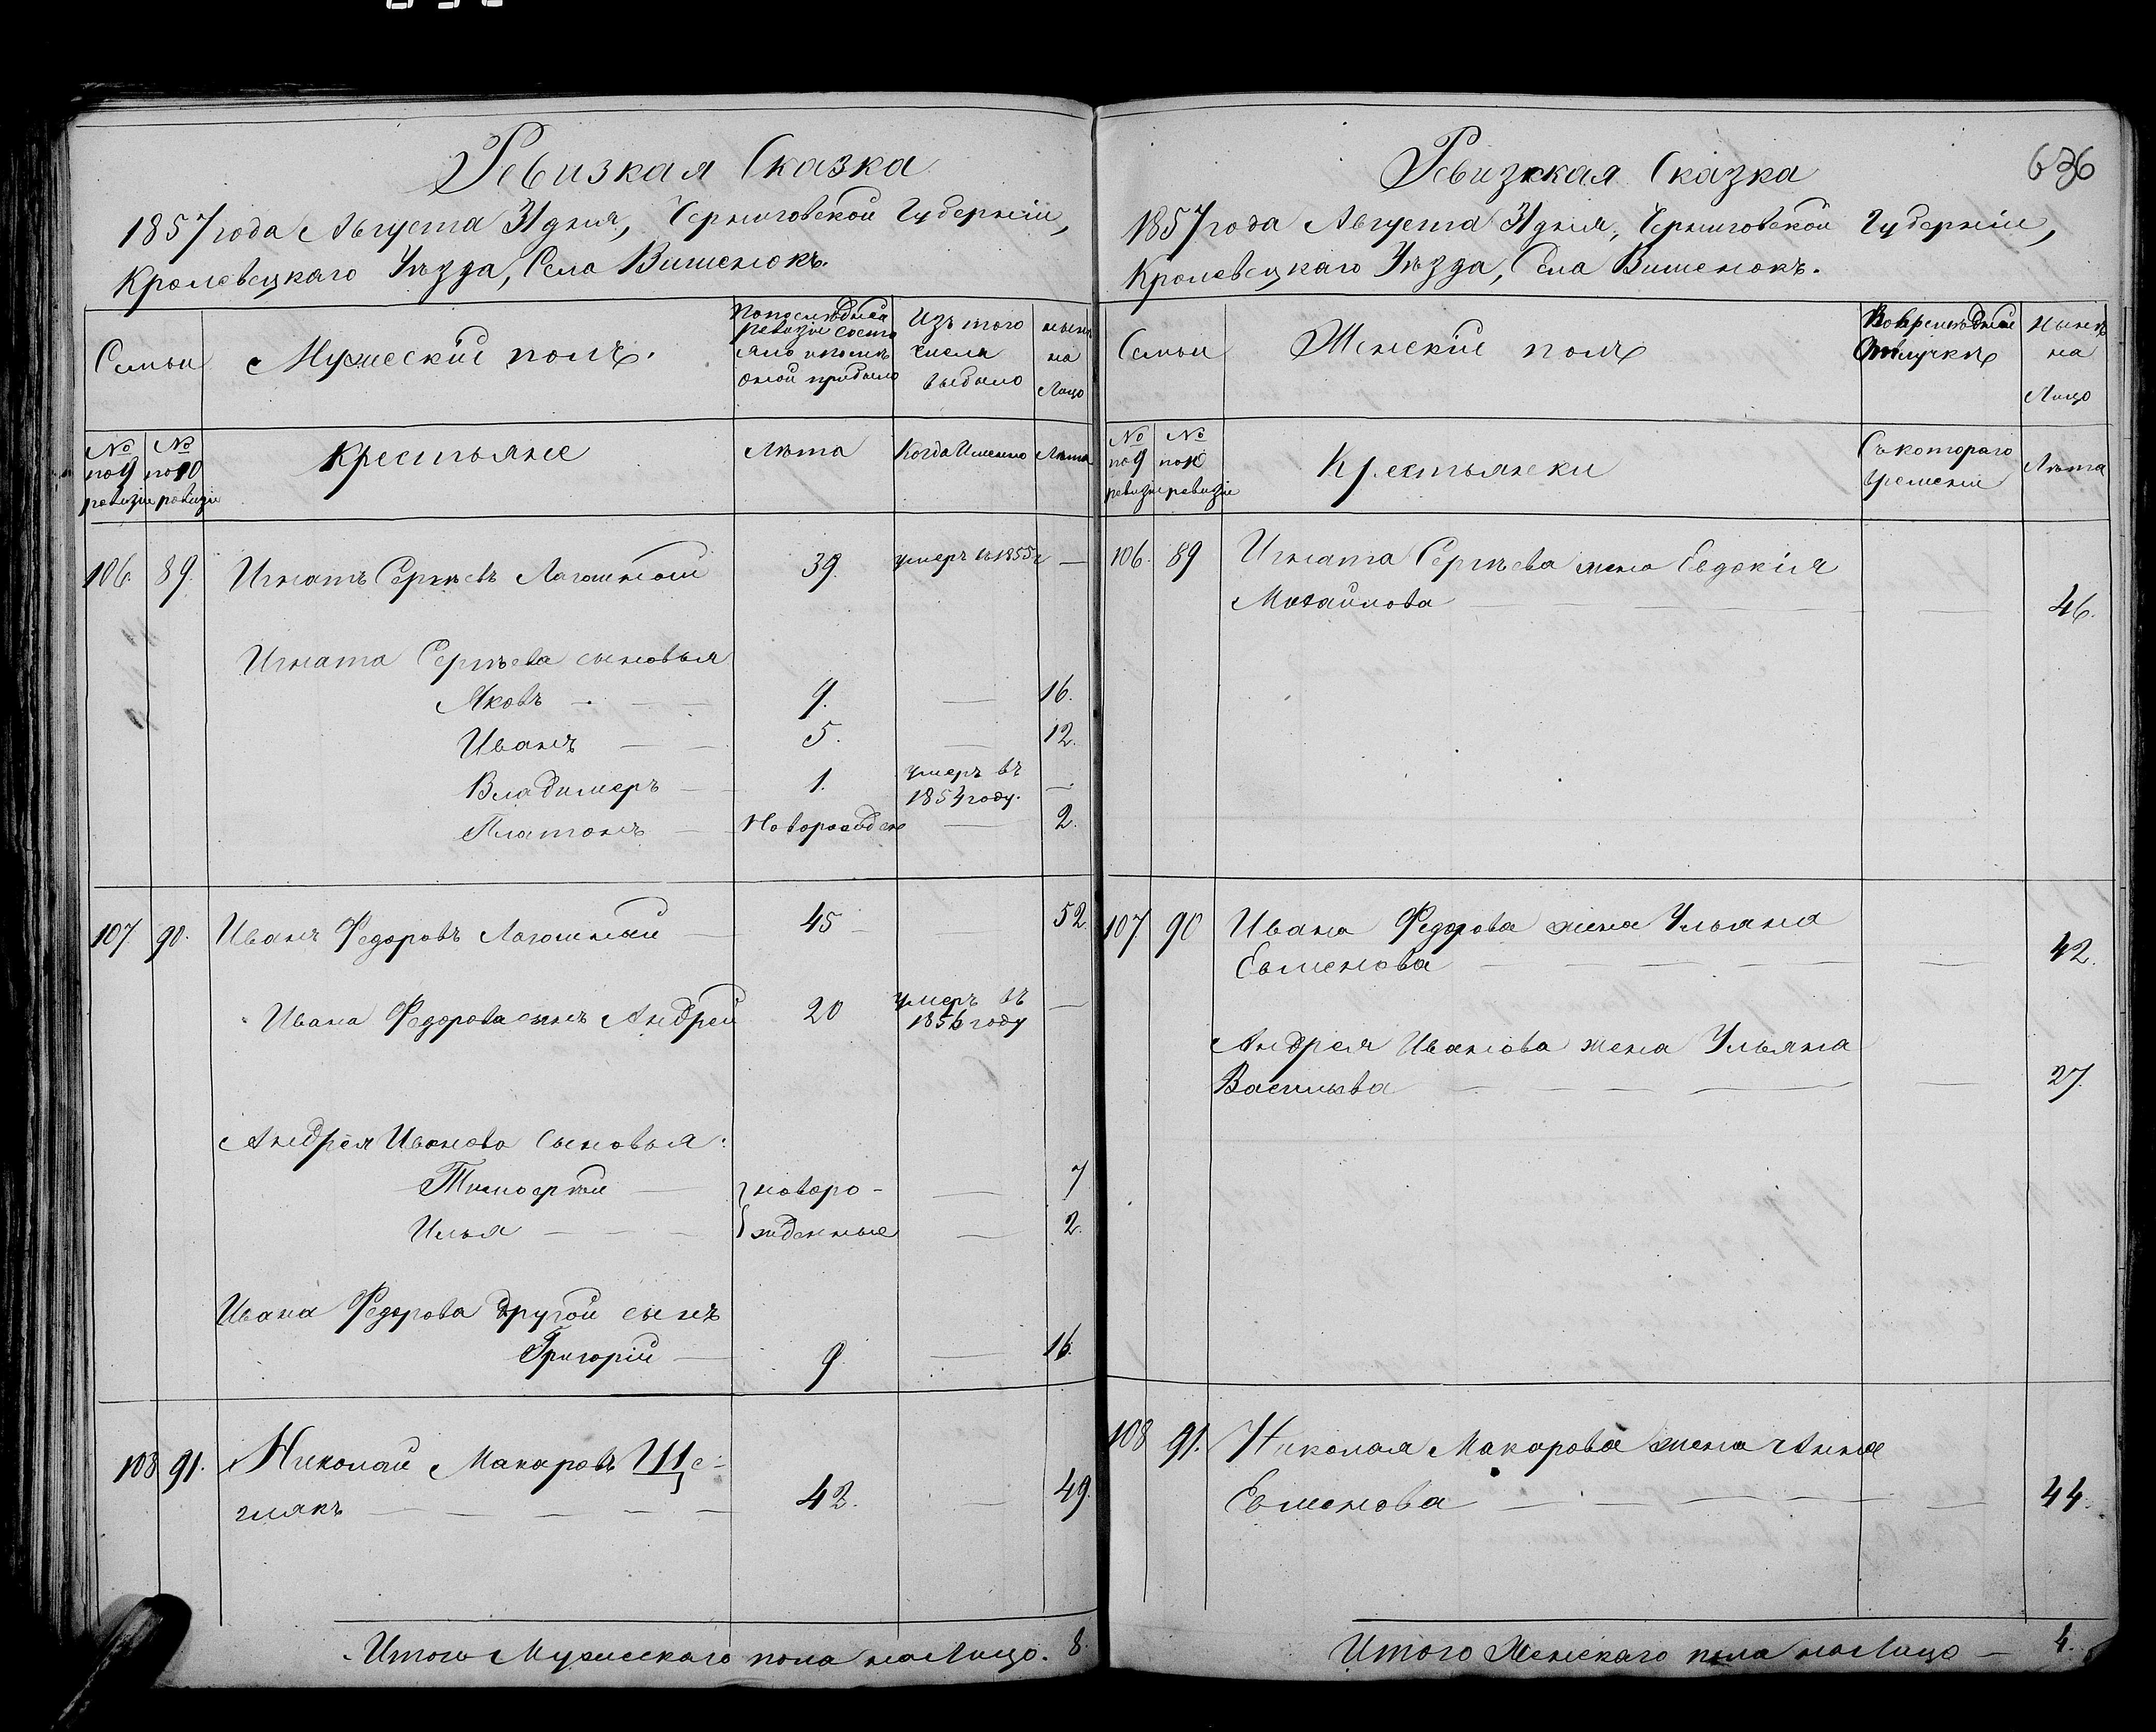 Ревизкая Сказка
1857 года Августа 31 дня, Черниговской Губерніи,
Кролевецкаго Уѣзда, Села Вишенокъ.
Семьи
Мужескій полъ.
По последней
ревизіи состо
яло и послѣ
оной прибыло
Изъ того
числа
выбыло
нынѣ
на
Лицо
№ по 9 ревизіи
№ по 10 ревизіи
Крестьяне
Лѣта
Когда Именно
Лѣта
106. 89. Игнатъ Сергѣевъ 39. умеръ въ 1855 г —
Игната Сергѣева сыновья
Яковъ — 9. — 16.
Иванъ — 5. — 12.
Владимеръ — 1. умеръ въ 1854 году. —
Платонъ — Новорожден — 2.
107. 90. Иванъ Федоровъ — 45 — 52
Ивана Федорова сынъ Андрей 20 умеръ въ 1856 году —
Андрея Иванова Сыновья:
Тимофей — новоро- — 7
Илья — жденные — 2.
Ивана Федорова другой сынъ
Григорій — 9 — 16.
108 91. Николай Макаровъ Ще-
глякъ — 42. — 49.
Итого Мужескаго пола на Лицо. 8.
Ревизская Сказка
636
1857 года Августа 31 дня, Черниговской Губерніи,
Кролевецкаго Уѣзда, Села Вишенокъ.
Семьи
Женскій полъ
Во временной
Отлучкѣ
Нынѣ
на
Лицо
№ по 9 ревизіи
№ по 10 ревизіи
Крестьянски
Съ котораго
времени
Лѣта
106. 89 Игната Сергѣева жена Евдокія
Михайлова — 46.
107 90 Ивана Федорова жена Ульяна
Евменова — 42.
Андрея Иванова жена Ульяна
Васильева — 27.
108 91. Николая Макарова жена Анна
Евменова — 44.
Итого Женскаго пола на Лицо — 4.